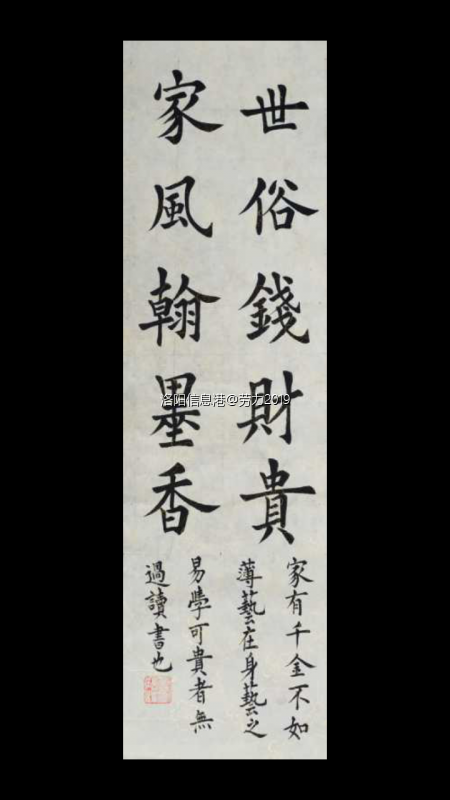 世俗錢財貴
家風翰墨香
家有千金不如
薄藝在身藝之
易學可貴者無
過讀書也
洛阳信息港@劳力2019